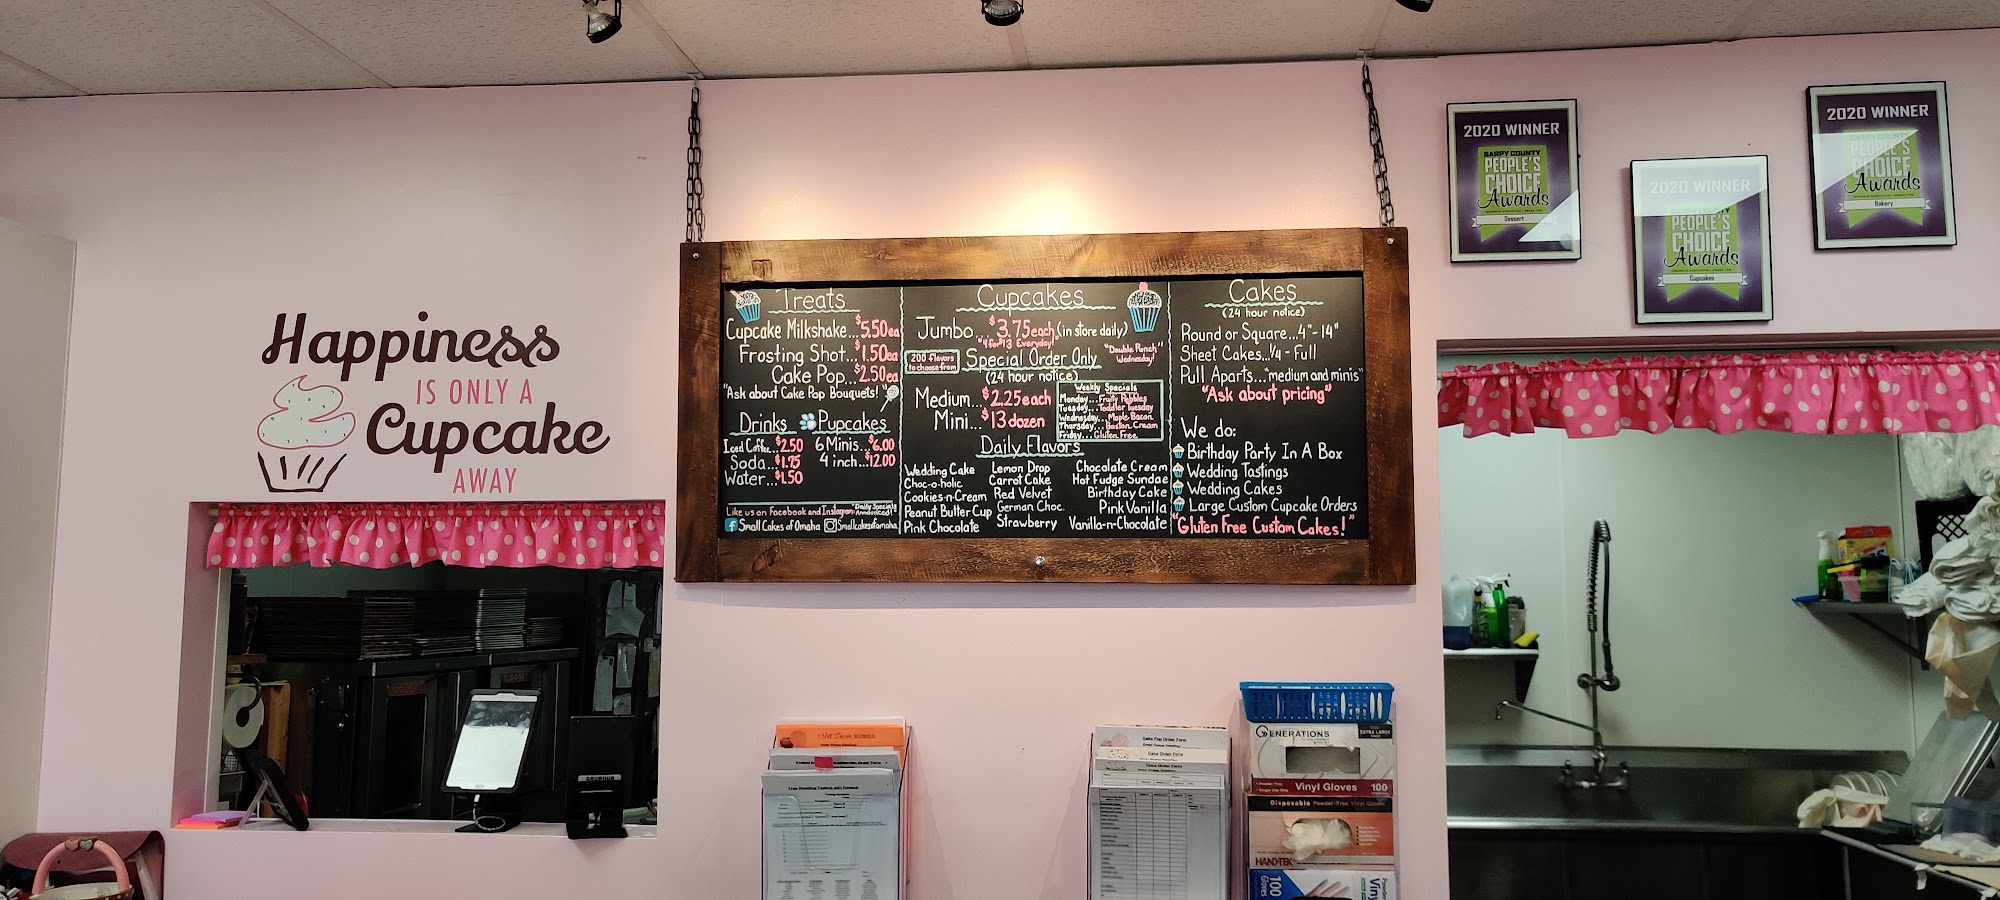 Happiness
IS ONLY A
Cupcake
AWAY
Treats
Cupcake Milkshake...$5.50ea
Frosting Shot...$1.50ea
Cake Pop...$2.50ea
"Ask about Cake Pop Bouquets!"
Drinks
Iced Coffee...$2.50
Soda...$1.75
Water...$1.50
Pupcakes
6 Minis...$6.00
4 inch...$12.00
Like us on Facebook and Instagram
"Daily Specials Announced!"
Small Cakes of Omaha
Smallcakesofomaha
Cupcakes
Jumbo...$3.75each (in store daily)
"4 for $13 Everyday!"
"Double Punch Wednesday!"
200 flavors
to choose from
Special Order Only
(24 hour notice)
Medium...$2.25each
Mini...$13 dozen
Weekly Specials
Monday...Fruity Pebbles
Tuesday...Toddler Tuesday
Wednesday...Maple Bacon
Thursday...Boston Cream
Friday...Gluten Free
Daily Flavors
Wedding Cake
Choc-o-holic
Cookies-n-Cream
Peanut Butter Cup
Pink Chocolate
Lemon Drop
Carrot Cake
Red Velvet
German Choc.
Strawberry
Chocolate Cream
Hot Fudge Sundae
Birthday Cake
Pink Vanilla
Vanilla-n-Chocolate
Cakes
(24 hour notice)
Round or Square...4"-14"
Sheet Cakes...1/4 - Full
Pull Aparts..."medium and minis"
"Ask about pricing"
We do:
Birthday Party In A Box
Wedding Tastings
Wedding Cakes
Large Custom Cupcake Orders
"Gluten Free Custom Cakes!"
2020 WINNER
SARPY COUNTY
PEOPLE'S
CHOICE
Awards
Dessert
2020 WINNER
PEOPLE'S
CHOICE
Awards
Cupcakes
2020 WINNER
SARPY COUNTY
PEOPLE'S
CHOICE
Awards
Bakery
Hot Cocoa BOMBS
Order Form
Free Wedding Tasting and Consult
Cake Pop Order Form
Cake Order Form
Cake Order Form
GRUBHUB
GENERATIONS
EXTRA LARGE
Vinyl Gloves 100
Disposable Powder-Free Vinyl Gloves
HANDTEK
100